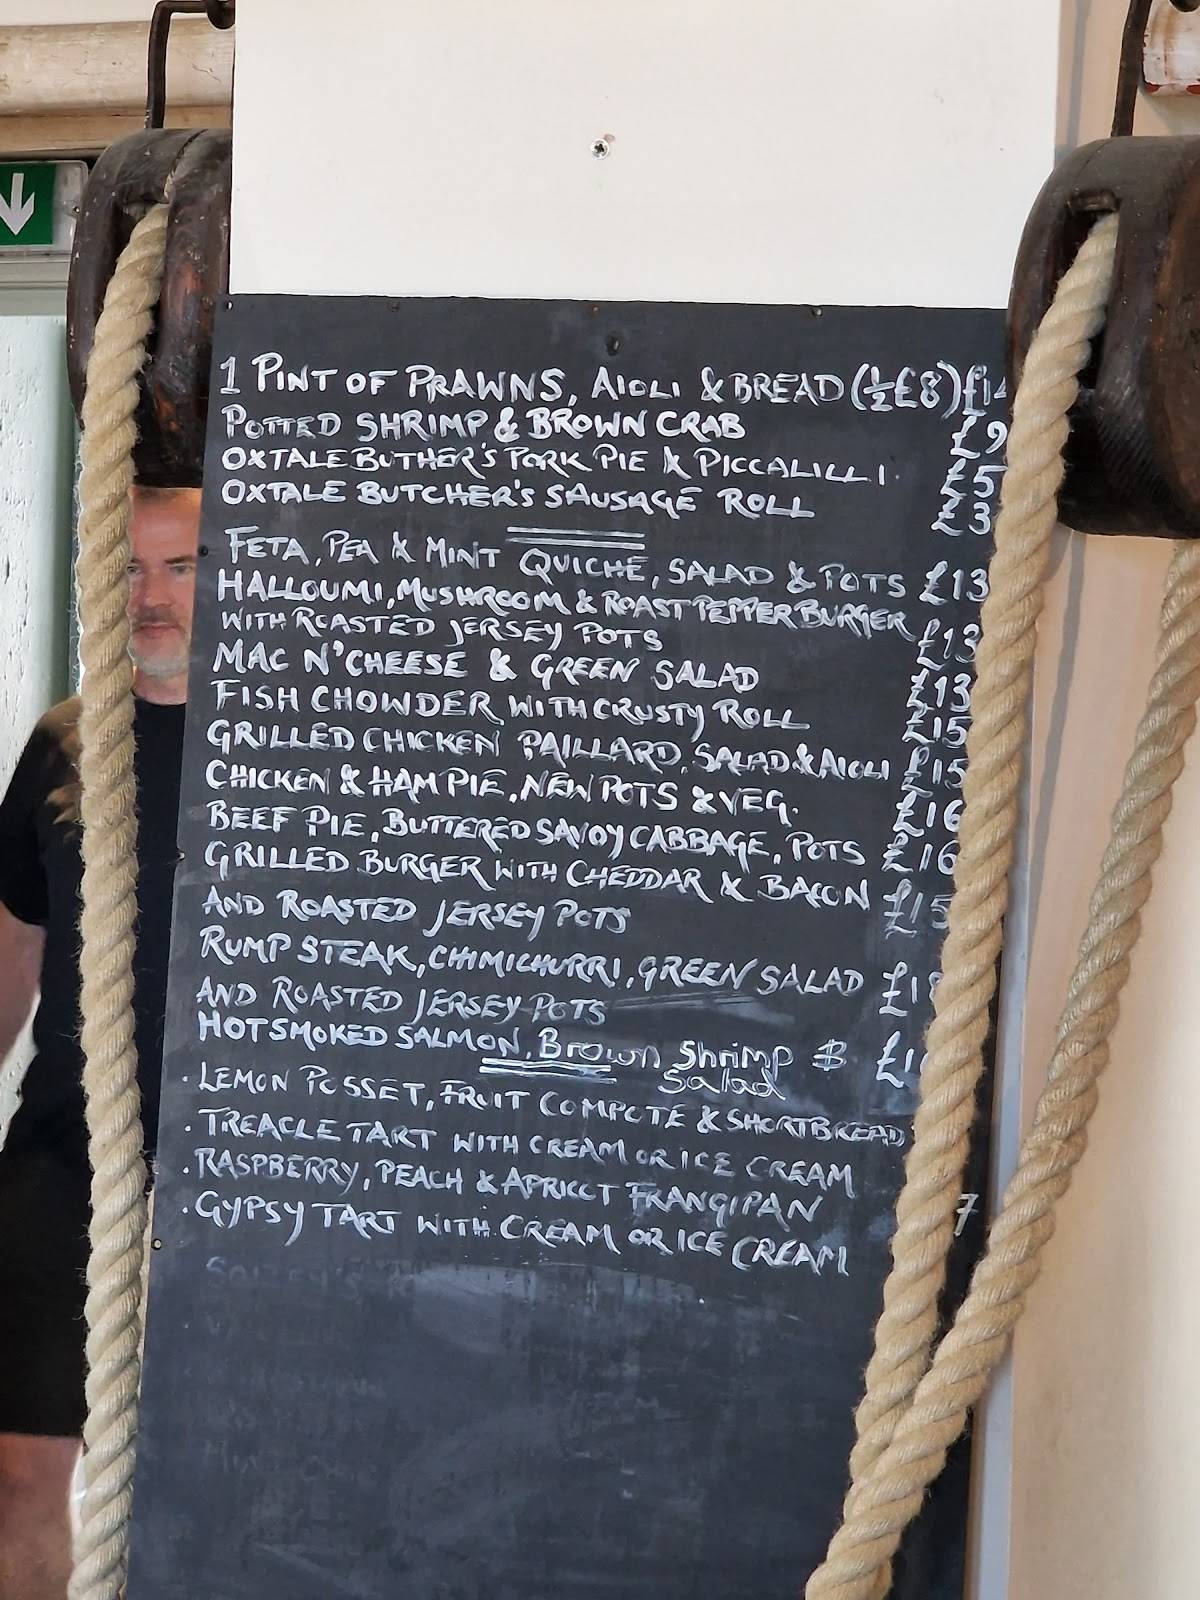 1 PINT OF PRAWNS, AIOLI & BREAD (½ £8)
POTTED SHRIMP & BROWN CRAB £9
OXTALE BUTHER'S PORK PIE & PICCALILLI. £5
OXTALE BUTCHER'S SAUSAGE ROLL £3
FETA, PEA & MINT QUICHE, SALAD & POTS £13
HALLOUMI, MUSHROOM & ROAST PEPPER BURGER
WITH ROASTED JERSEY POTS £13
MAC N'CHEESE & GREEN SALAD £13
FISH CHOWDER WITH CRUSTY ROLL £15
GRILLED CHICKEN PAILLARD, SALAD & AIOLI £15
CHICKEN & HAM PIE, NEW POTS & VEG. £16
BEEF PIE, BUTTERED SAVOY CABBAGE, POTS £16
GRILLED BURGER WITH CHEDDAR & BACON £15
AND ROASTED JERSEY POTS
RUMP STEAK, CHIMICHURRI, GREEN SALAD
AND ROASTED JERSEY POTS
HOT SMOKED SALMON, Brown Shrimp &
Salad
· LEMON POSSET, FRUIT COMPOTE & SHORTBREAD
· TREACLE TART WITH CREAM OR ICE CREAM
· RASPBERRY, PEACH & APRICOT FRANGIPAN 7
· GYPSY TART WITH CREAM OR ICE CREAM